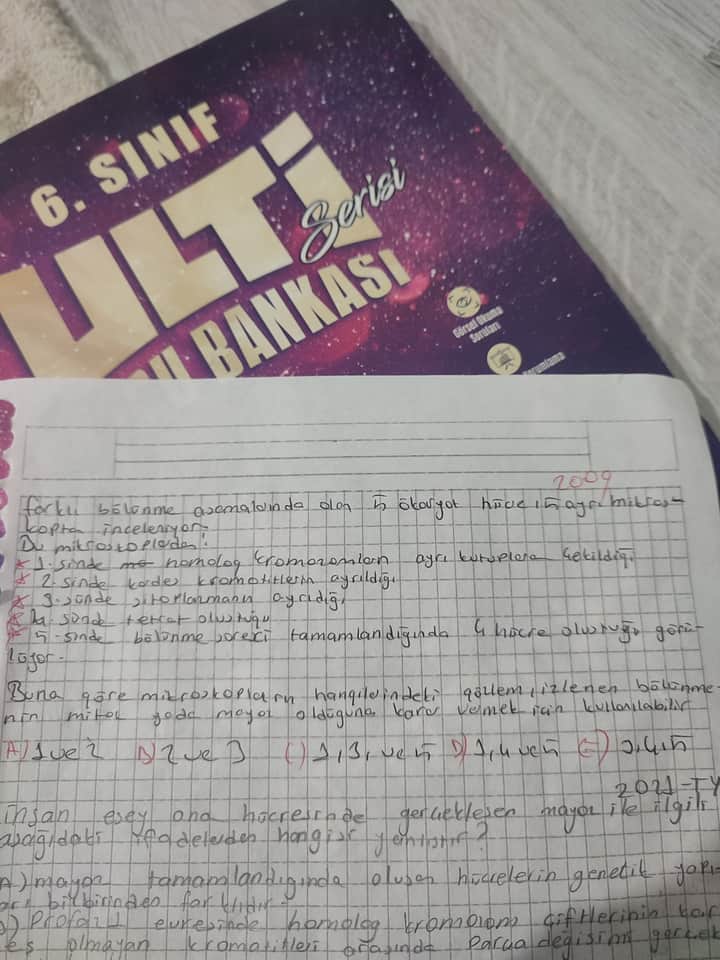 6. SINIF
ULTi
Serisi
BANKASI
Görsel Okuma
Soruları
2009
farklı bölünme aşamalarında olan 5 ökaryot hücre, 5 ayrı mikros-
kopta inceleniyor.
Bu mikroskoplardan;
* 1.sinde homolog kromozomların ayrı kutuplara çekildiği
* 2.sinde kardeş kromatitlerin ayrıldığı
* 3.sünde sitoplazmanın ayrıldığı
* 4. sünde tetrat oluştuğu
* 5.sinde bölünme süreci tamamlandığında 4 hücre oluştuğu görü-
lüyor.
Buna göre mikroskopların hangilerindeki gözlem, izlenen bölünme-
nin mitoz yada mayoz olduğuna karar vermek için kullanılabilir
A) 1 ve 2 B) 2 ve 3 C) 1, 3, ve 5 D) 1, 4 ve 5 E) 3, 4, 5
2021-TY
insan eşey ana hücresinde gerçekleşen mayoz ile ilgili
aşağıdaki ifadelerden hangisi yanlıştır?
A) mayoz tamamlandığında oluşan hücrelerin genetik yapı-
ları birbirinden farklıdır.
B) Profaz I evresinde homolog kromozom çiftlerinin kar
eş olmayan kromatitleri arasında parça değişimi gerçek